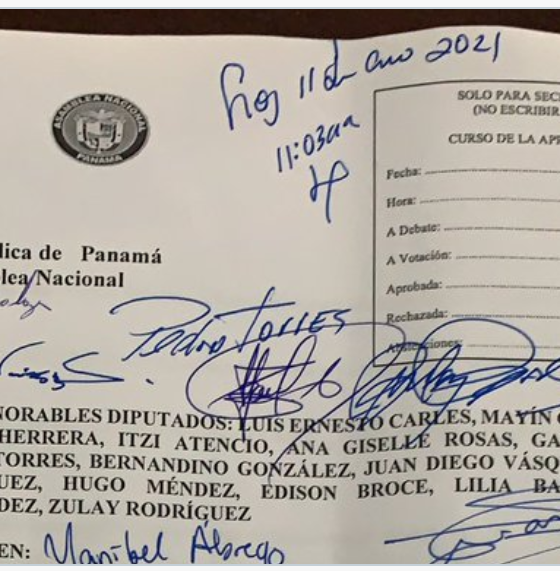 Hoy 11 de 2021
11:03am
ASAMBLEA NACIONAL
PANAMÁ
SOLO PARA SEC
(NO ESCRIBIR
CURSO DE LA AP
Fecha:
Hora:
A Debate:
A Votación:
Aprobada:
Rechazada:
Abstenciones:
lica de Panamá
lea Nacional
Pedro Torres
NORABLES DIPUTADOS: LUIS ERNESTO CARLES, MAYÍN
HERRERA, ITZI ATENCIO, ANA GISELLE ROSAS, GA
TORRES, BERNANDINO GONZÁLEZ, JUAN DIEGO VÁSQ
UEZ, HUGO MÉNDEZ, EDISON BROCE, LILIA BA
DEZ, ZULAY RODRÍGUEZ
EN: Maribel Abrego